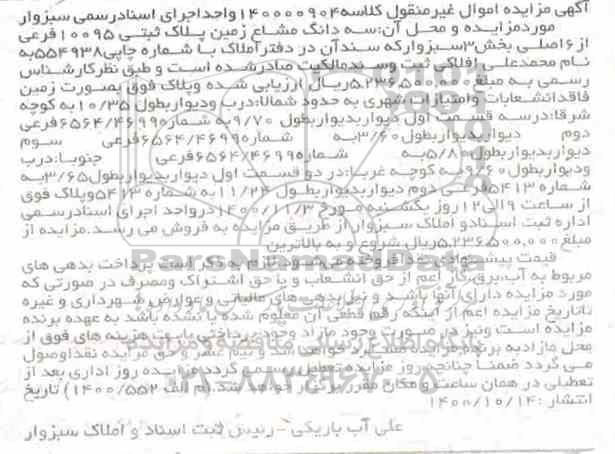 آگهی مزایده اموال غیرمنقول کلاسه ۱۴۰۰۰۰۹۰۴ واحد اجرای اسناد رسمی سبزوار
مورد مزایده و محل آن: سه دانگ مشاع زمین پلاک ثبتی ۱۰۰۹۵ فرعی
از ۶ اصلی بخش ۳ سبزوار که سند آن در دفتر املاک با شماره چاپی ۵۵۴۹۳۸ به
نام محمدعلی افلاکی ثبت و سند مالکیت صادر شده است و طبق نظر کارشناس
رسمی به مبلغ ۵.۲۳۶.۵۰۰.۰۰۰ ریال ارزیابی شده و پلاک فوق بصورت زمین
فاقد انشعابات و امتیازات شهری به حدود شمالا: درب و دیوار بطول ۱۰/۳۵ به کوچه
شرقا: در سه قسمت اول دیوار بدیوار بطول ۹/۷۰ به شماره ۶۵۶۴/۴۶۹۹ فرعی
دوم دیوار بدیوار بطول ۳/۶۰ به شماره ۶۵۶۴/۴۶۹۹ فرعی سوم
دیوار بدیوار بطول ۵/۸۰ به شماره ۶۵۶۴/۴۶۹۹ فرعی جنوبا: درب
و دیوار بطول ۹/۶۰ به کوچه غربا: در دو قسمت اول دیوار بدیوار بطول ۳/۶۵ به
شماره ۵۴۱۳ فرعی دوم دیوار بدیوار بطول ۱۱/۲۴ به شماره ۵۴۱۳ و پلاک فوق
از ساعت ۹ الی ۱۲ روز یکشنبه مورخ ۱۴۰۰/۱۱/۳ در واحد اجرای اسناد رسمی
اداره ثبت اسناد و املاک سبزوار از طریق مزایده به فروش می رسد. مزایده از
مبلغ ۵.۲۳۶.۵۰۰.۰۰۰ ریال شروع و به بالاترین
قیمت پیشنهادی نقد فروخته می شود لازم به ذکر است پرداخت بدهی های
مربوط به آب، برق، گاز اعم از حق انشعاب و یا حق اشتراک و مصرف در صورتی که
مورد مزایده دارای آنها باشد و نیز بدهی های مالیاتی و عوارض شهرداری و غیره
تا تاریخ مزایده اعم از اینکه رقم قطعی آن معلوم شده یا نشده باشد به عهده برنده
مزایده است و نیز در صورت وجود مازاد وجوه پرداختی بابت هزینه های فوق از
محل مازاد به برنده مزایده مسترد خواهد شد و نیم عشر و حق مزایده نقدا وصول
می گردد ضمنا چنانچه روز مزایده تعطیل رسمی گردد مزایده روز اداری بعد از
تعطیلی در همان ساعت و مکان مقرر برگزار خواهد شد. (م الف ۱۴۰۰/۵۵۲) تاریخ
انتشار: ۱۴۰۰/۱۰/۱۴
علی آب باریکی - رئیس ثبت اسناد و املاک سبزوار